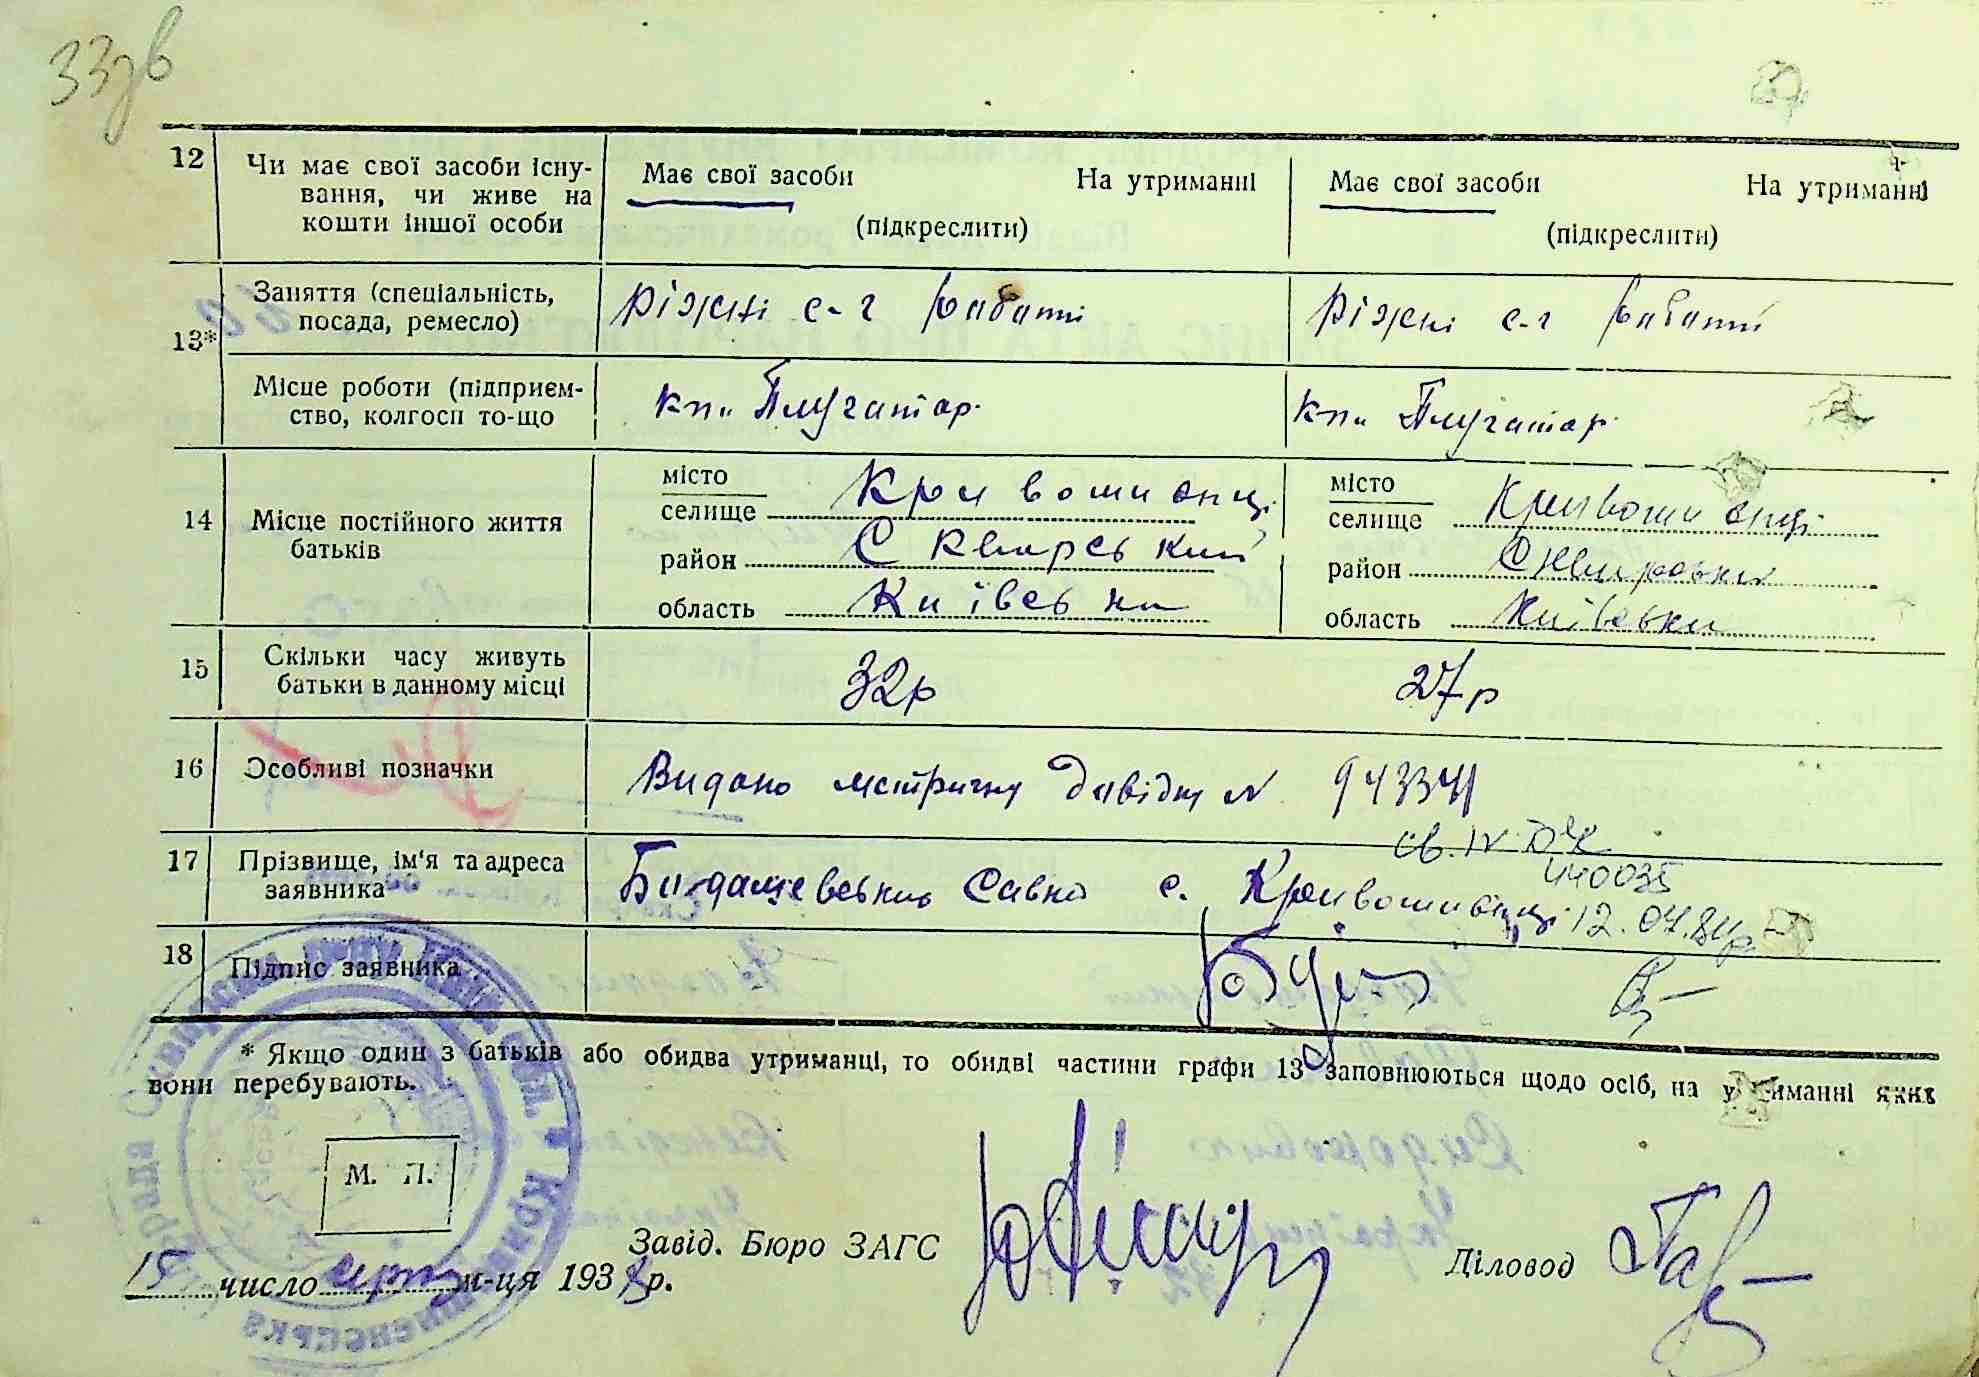 33зв
12 Чи має свої засоби існу-
вання, чи живе на
кошти іншої особи
Має свої засоби На утриманні
(підкреслити)
Має свої засоби На утриманні
(підкреслити)
13*
Заняття (спеціальність,
посада, ремесло)
Ріжні с-г работі
Ріжні с-г работі
Місце роботи (підприєм-
ство, колгосп то-що
Плугатар
Плугатар
14 Місце постійного життя
батьків
місто
селище Кривошиєнці
район Сквирський
область Київська
місто
селище Кривошиєнці
район Сквирський
область Київська
15 Скільки часу живуть
батьки в данному місці
32р 27р
16 Особливі позначки
Видано метричну довідку N 943341
17 Прізвище, ім'я та адреса
заявника
Савка с. Кривошиєнці
440035
12.04.84р
18 Підпис заявника
* Якщо один з батьків або обидва утриманці, то обидві частини графи 13 заповнюються щодо осіб, на утриманні яких
вони перебувають.
М. П.
15 число серпня м-ця 193 р.
Завід. Бюро ЗАГС
Діловод